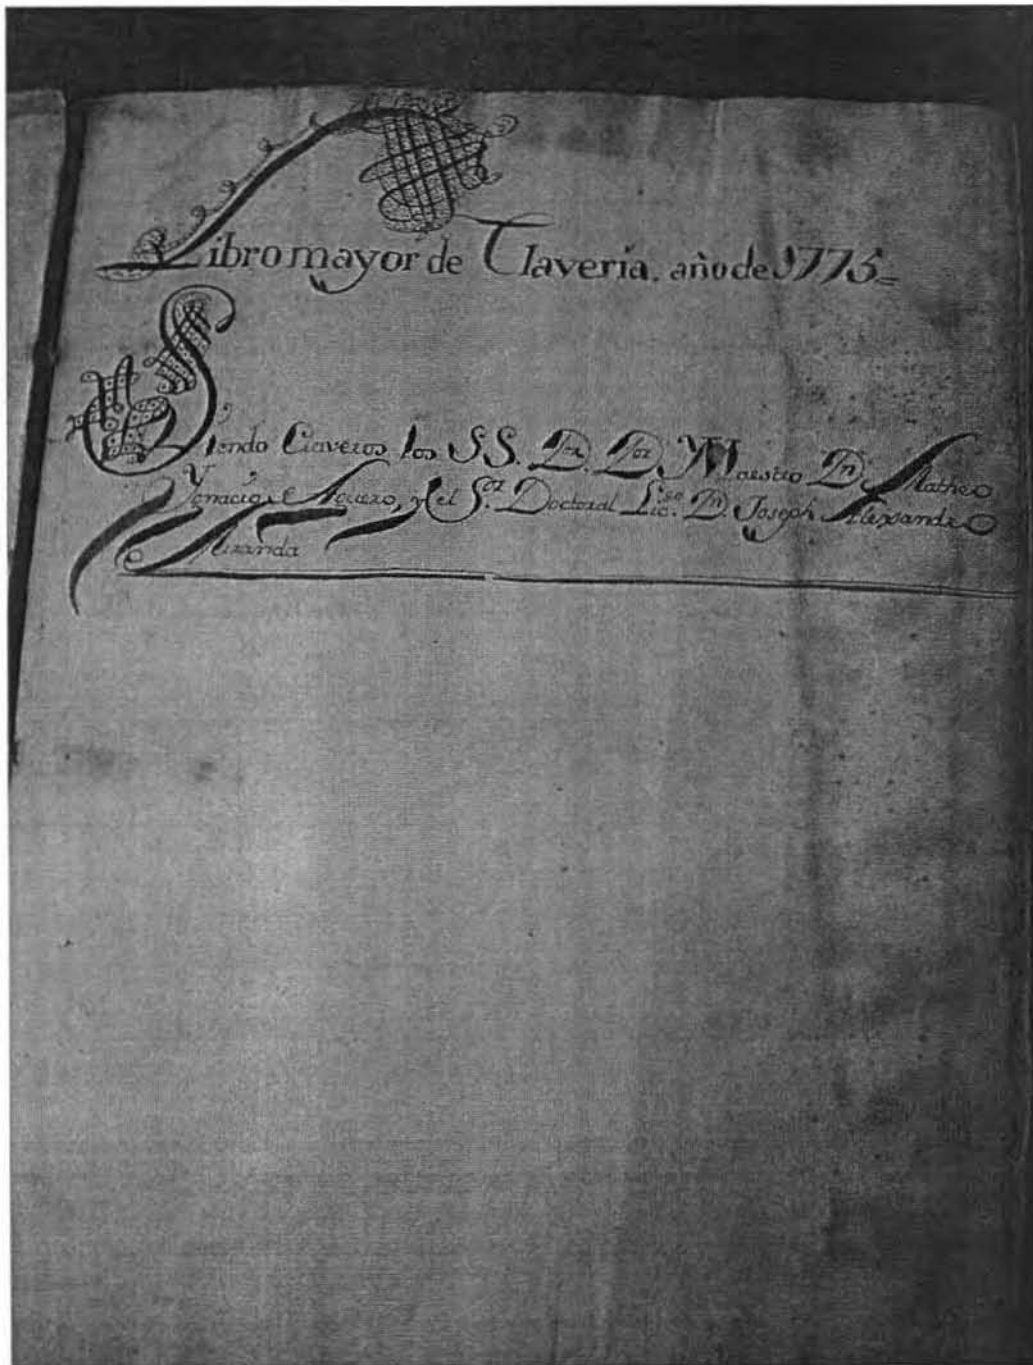 Libro mayor de Claveria. año de 1775=
Siendo Claveros los SS. D. Dor Maestro Dn. Matheo
Ygnacio de Aguero, y el Sor. Doctoral Lic.do Dn. Joseph Alexandro
Miranda